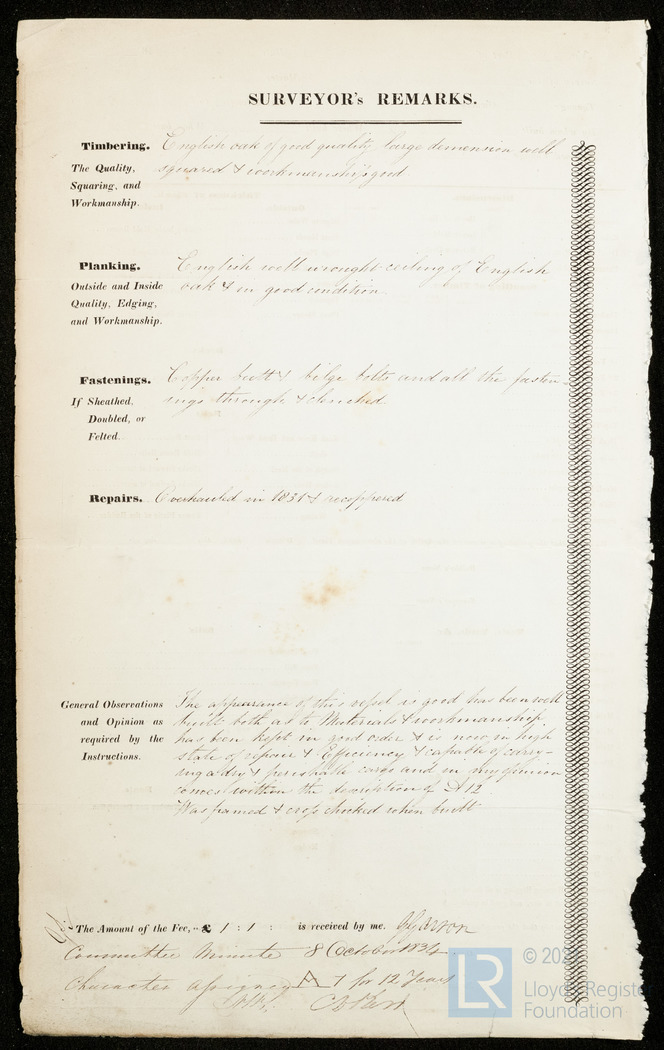 SURVEYOR's REMARKS.
Timbering. English oak of good quality, large dimension well
The Quality, squared & workmanship good
Squaring, and
Workmanship.
Planking. English well wrought ceiling of English
Outside and Inside oak & in good condition
Quality, Edging,
and Workmanship.
Fastenings. Copper butt & bilge bolts and all the fasten-
If Sheathed, ings through & clenched
Doubled, or
Felted.
Repairs. Overhauled in 1831 & recoppered
General Observations The appearance of this vessel is good has been well
and Opinion as built both as to Materials & workmanship.
required by the has been kept in good order & is now in high
Instructions. state of repair & Efficiency & capable of carry-
ing a dry & perishable cargo and in my opinion
comes within the description of A 12
Was framed & cross chocked when built
The Amount of the Fee, £ 1 : 1 : is received by me.
Committee Minute 8 October 1834
Character assigned A 1 for 12 Years
LR
© 202
Lloyd's Register
Foundation